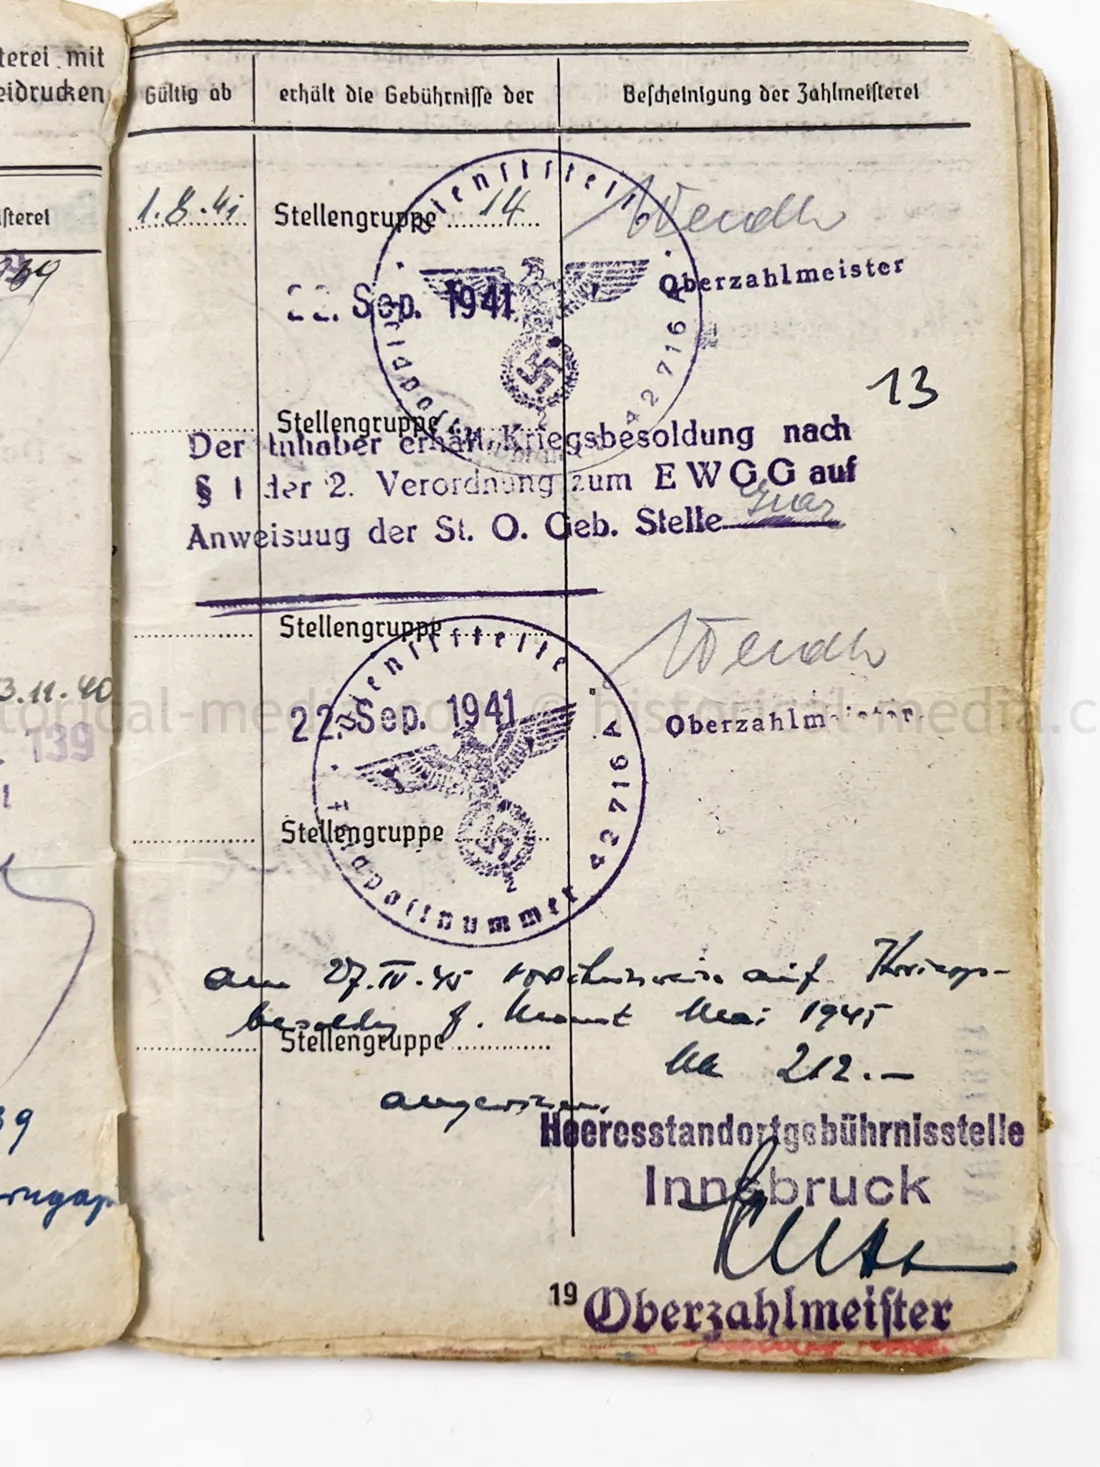 terei mit
eidrucken
isterei
3.11.40
139
39
Gültig ab
erhält die Gebührnisse der
Bescheinigung der Zahlmeisterei
1.8.41
Stellengruppe 14
Wendh
Oberzahlmeister
22. Sep. 1941
Dienststelle
Feldpostnummer 42716 A
2
13
Stellengruppe
Der Inhaber erhält Kriegsbesoldung nach
§ 1 der 2. Verordnung zum E W G G auf
Anweisuug der St. O. Geb. Stelle Graz
Stellengruppe
Wendh
Oberzahlmeister
22. Sep. 1941
Dienststelle
Feldpostnummer 42716 A
2
Stellengruppe
historical-media.com © historical-media.c
am 27.IV.45 vorschussweise auf Kriegs-
besoldg f. Monat Mai 1945
Stellengruppe
RM 212.—
angewiesen.
Heeresstandortgebührnisstelle
Innsbruck
Oberzahlmeister
19